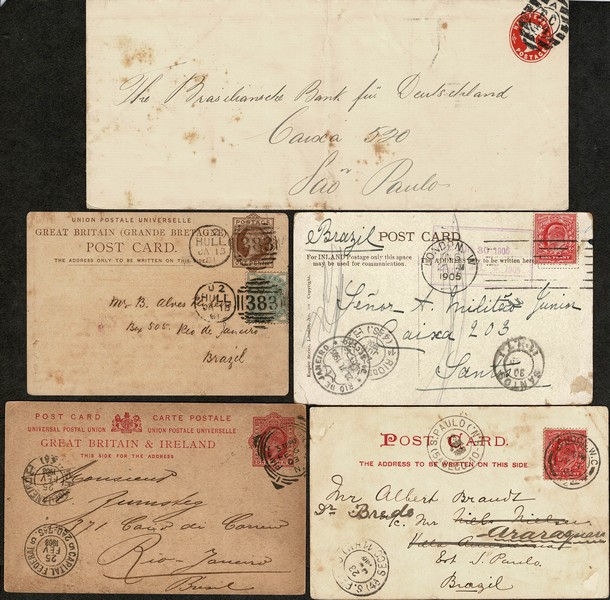 POSTAGE
The Brasilianische Bank für Deutschland
Caixa 520
São Paulo
UNION POSTALE UNIVERSELLE
GREAT BRITAIN (GRANDE BRETAGNE)
POST CARD.
THE ADDRESS ONLY TO BE WRITTEN ON THIS
POSTAGE
HULL
JA 13
383
HULL
383
Mr. B. Alves
Box 505 Rio de Janeiro
Brazil
Brazil
POST CARD
For INLAND Postage only this space
may be used for communication.
THE ADDRESS to be written here.
LONDON. W
1905
30 1905
Señor A. Militão Junior
Caixa 203
Sant
RIO DE JANEIRO
SANTOS
POST CARD
CARTE POSTALE
UNIVERSAL POSTAL UNION
UNION POSTALE UNIVERSELLE
GREAT BRITAIN & IRELAND
THIS SIDE FOR THE ADDRESS
Monsieur
Rio-Janeiro
Bresil
CAPITAL FEDERAL
25
FEV
POST CARD.
THE ADDRESS TO BE WRITTEN ON THIS SIDE
S. PAULO
Mr Albert Brandt
Dr. Bredo
c. Mr
Araraquara
Est S. Paulo.
Brazil